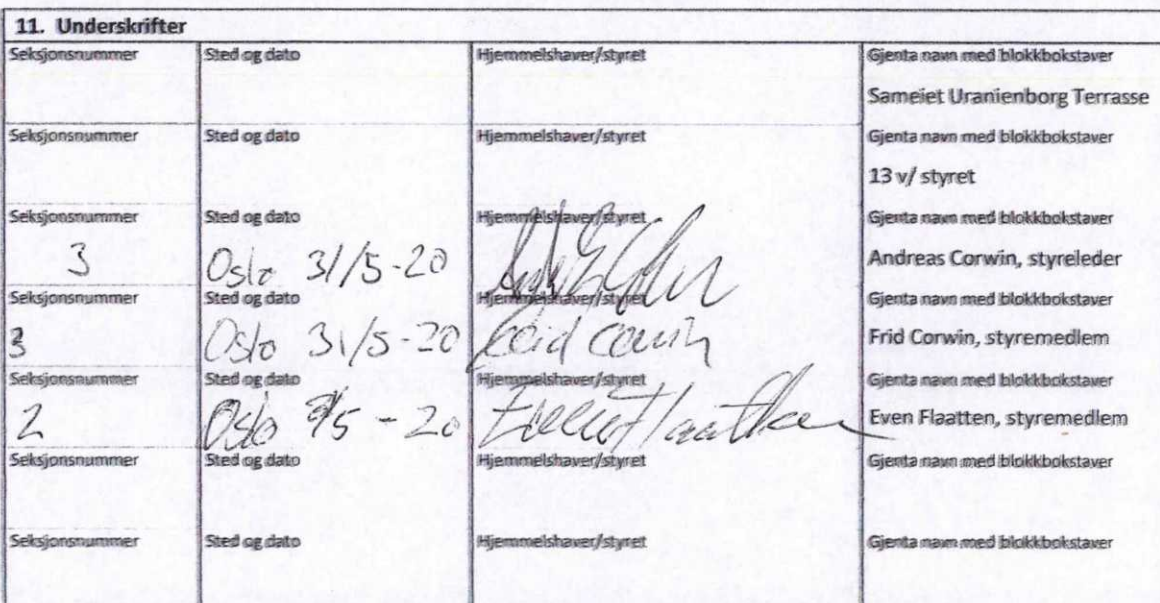 11. Underskrifter
Seksjonsnummer Sted og dato Hjemmelshaver/styret Gjenta navn med blokkbokstaver
Sameiet Uranienborg Terrasse
Seksjonsnummer Sted og dato Hjemmelshaver/styret Gjenta navn med blokkbokstaver
13 v/ styret
Seksjonsnummer Sted og dato Hjemmelshaver/styret Gjenta navn med blokkbokstaver
3 Oslo 31/5-20 Andreas Corwin, styreleder
Seksjonsnummer Sted og dato Hjemmelshaver/styret Gjenta navn med blokkbokstaver
3 Oslo 31/5-20 Frid Corwin Frid Corwin, styremedlem
Seksjonsnummer Sted og dato Hjemmelshaver/styret Gjenta navn med blokkbokstaver
2 Oslo Even Flaatten Even Flaatten, styremedlem
Seksjonsnummer Sted og dato Hjemmelshaver/styret Gjenta navn med blokkbokstaver
Seksjonsnummer Sted og dato Hjemmelshaver/styret Gjenta navn med blokkbokstaver